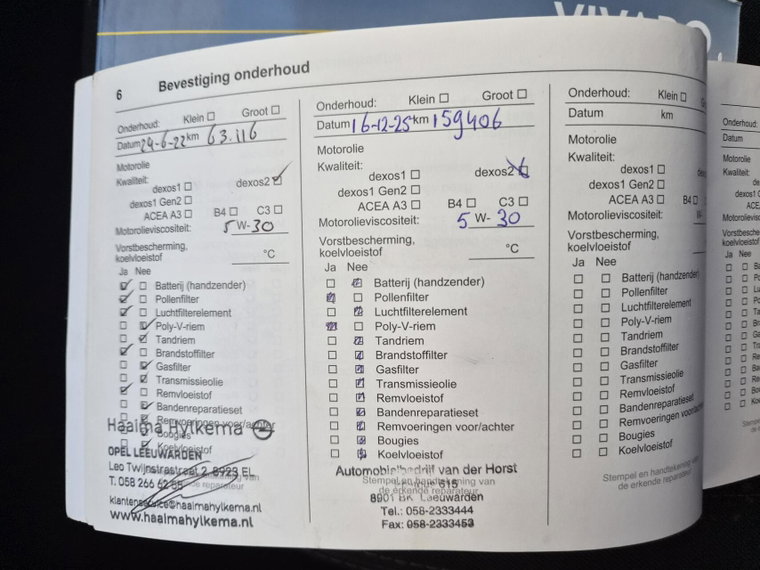 VIVARO.
6 Bevestiging onderhoud
Onderhoud: Klein Groot
Datum 24-6-22 km 63.116
Motorolie
Kwaliteit:
dexos1 dexos2
dexos1 Gen2
ACEA A3 B4 C3
Motorolieviscositeit: 5 W- 30
Vorstbescherming,
koelvloeistof °C
Ja Nee
Batterij (handzender)
Pollenfilter
Luchtfilterelement
Poly-V-riem
Tandriem
Brandstoffilter
Gasfilter
Transmissieolie
Remvloeistof
Bandenreparatieset
Remvoeringen voor/achter
Haaima Hylkema
Bougies
Koelvloeistof
OPEL LEEUWARDEN
Leo Twijnstrastraat 2 8923 EL
T. 058 266
klantenservice@haaimahylkema.nl
www.haaimahylkema.nl
Onderhoud: Klein Groot
Datum 16-12-25 km 159406
Motorolie
Kwaliteit:
dexos1 dexos2
dexos1 Gen2
ACEA A3 B4 C3
Motorolieviscositeit: 5 W- 30
Vorstbescherming,
koelvloeistof °C
Ja Nee
Batterij (handzender)
Pollenfilter
Luchtfilterelement
Poly-V-riem
Tandriem
Brandstoffilter
Gasfilter
Transmissieolie
Remvloeistof
Bandenreparatieset
Remvoeringen voor/achter
Bougies
Koelvloeistof
Automobielbedrijf van der Horst
Stempel en handtekening van
de erkende reparateur
615
8901 BK Leeuwarden
Tel.: 058-2333444
Fax: 058-2333453
Onderhoud: Klein
Datum km
Motorolie
Kwaliteit:
dexos1
dexos1 Gen2
ACEA A3 B4
Motorolieviscositeit: W-
Vorstbescherming,
koelvloeistof
Ja Nee
Batterij (handzender)
Pollenfilter
Luchtfilterelement
Poly-V-riem
Tandriem
Brandstoffilter
Gasfilter
Transmissieolie
Remvloeistof
Bandenreparatieset
Remvoeringen voor/achter
Bougies
Koelvloeistof
Stempel en handtekening van
de erkende reparateur
Onderhoud:
Datum
Motorolie
Kwaliteit:
Ja Nee